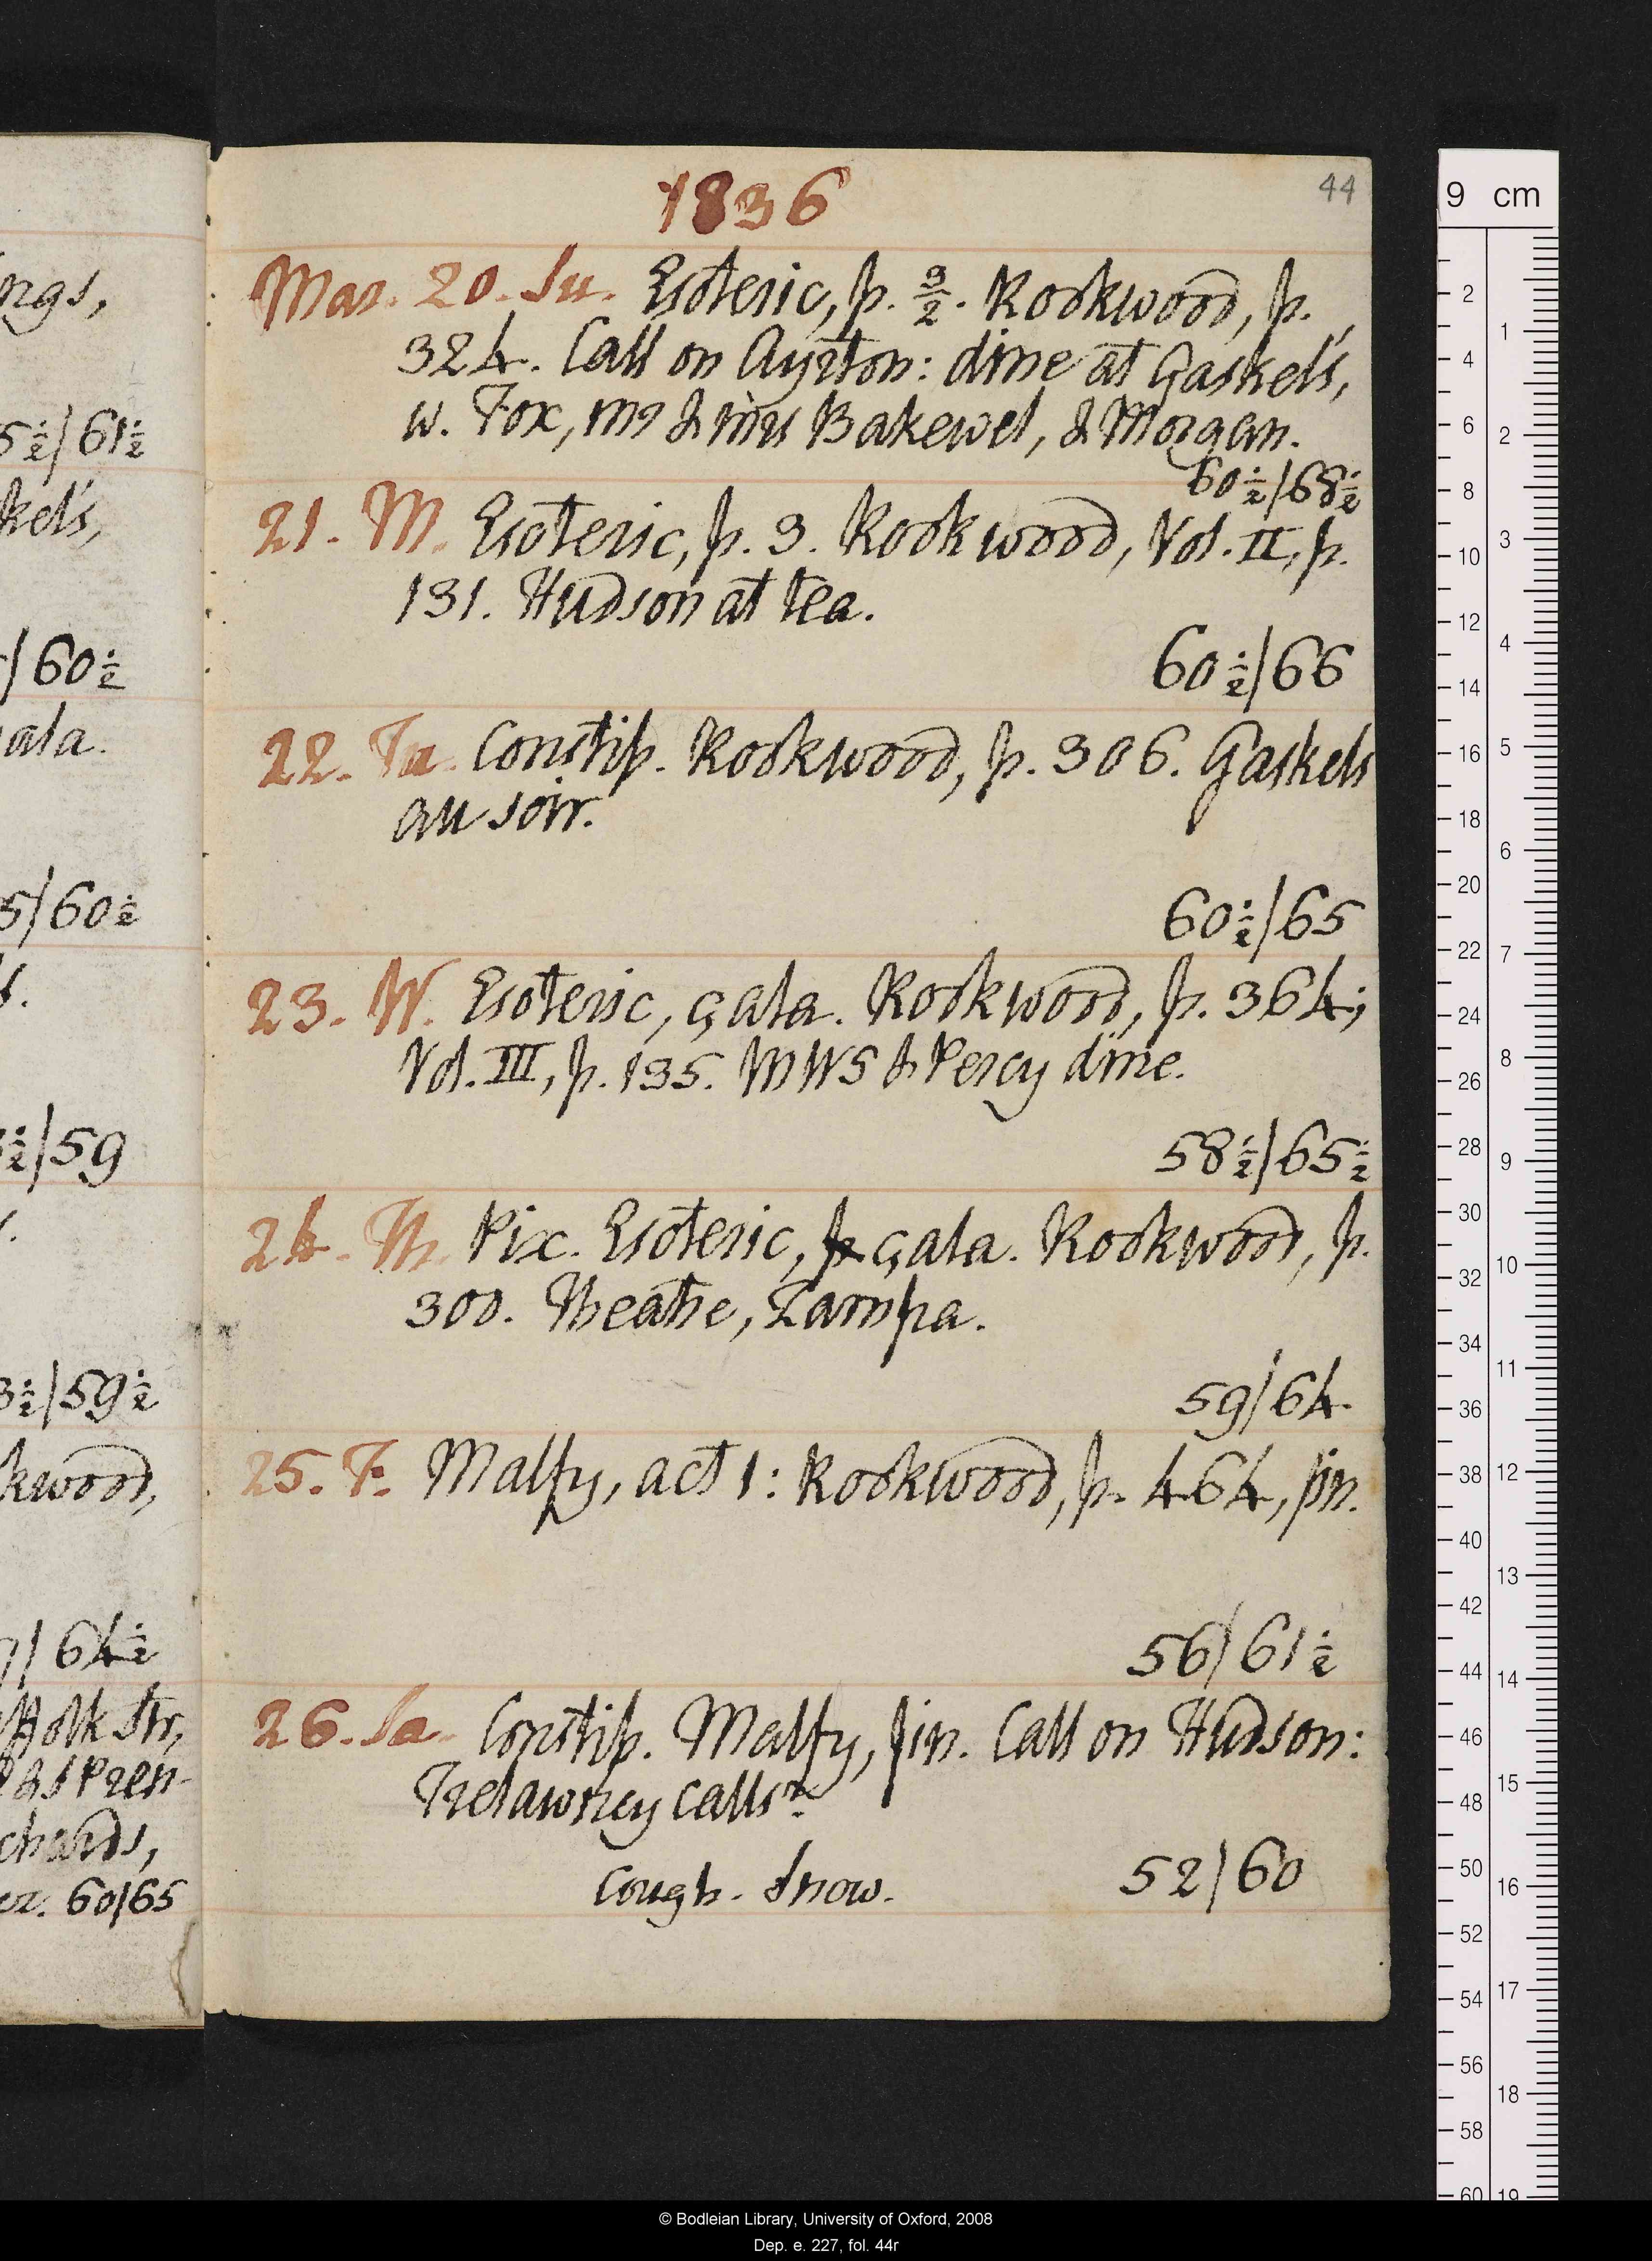 1836
44
Mar. 20. Su. Esoteric, p. 3/2. Rookwood, p.
324. Call on Ayrton: dine at Gaskel's,
w. Fox, mr & mrs Bakewel, & Morgan.
60½/68½
21. M. Esoteric, p. 3. Rookwood, Vol. II, p.
131. Hudson at tea.
60½/66
22. Tu. Constip. Rookwood, p. 306. Gaskels
au soir.
60½/65
23. W. Esoteric, çala. Rookwood, p. 364;
Vol. III, p. 135. MWS & Percy dine.
58½/65½
24. Th. Pix. Esoteric, p çala. Rookwood, p.
300. Theatre, Zampa.
59/64
25. F. Malfy, act 1: Rookwood, p. 464, fin.
56/61½
26. Sa. Constip. Malfy, fin. Call on Hudson:
Trelawney calls n
Cough. Snow. 52/60
ngs,
5½/61½
kel's,
/60½
ala.
5/60½
½/59
½/59½
kwood,
/64½
olk Str,
Pren-
chards,
60/65
9 cm
2
4
6
8
10
12
14
16
18
20
22
24
26
28
30
32
34
36
38
40
42
44
46
48
50
52
54
56
58
60
1
2
3
4
5
6
7
8
9
10
11
12
13
14
15
16
17
18
19
© Bodleian Library, University of Oxford, 2008
Dep. e. 227, fol. 44r